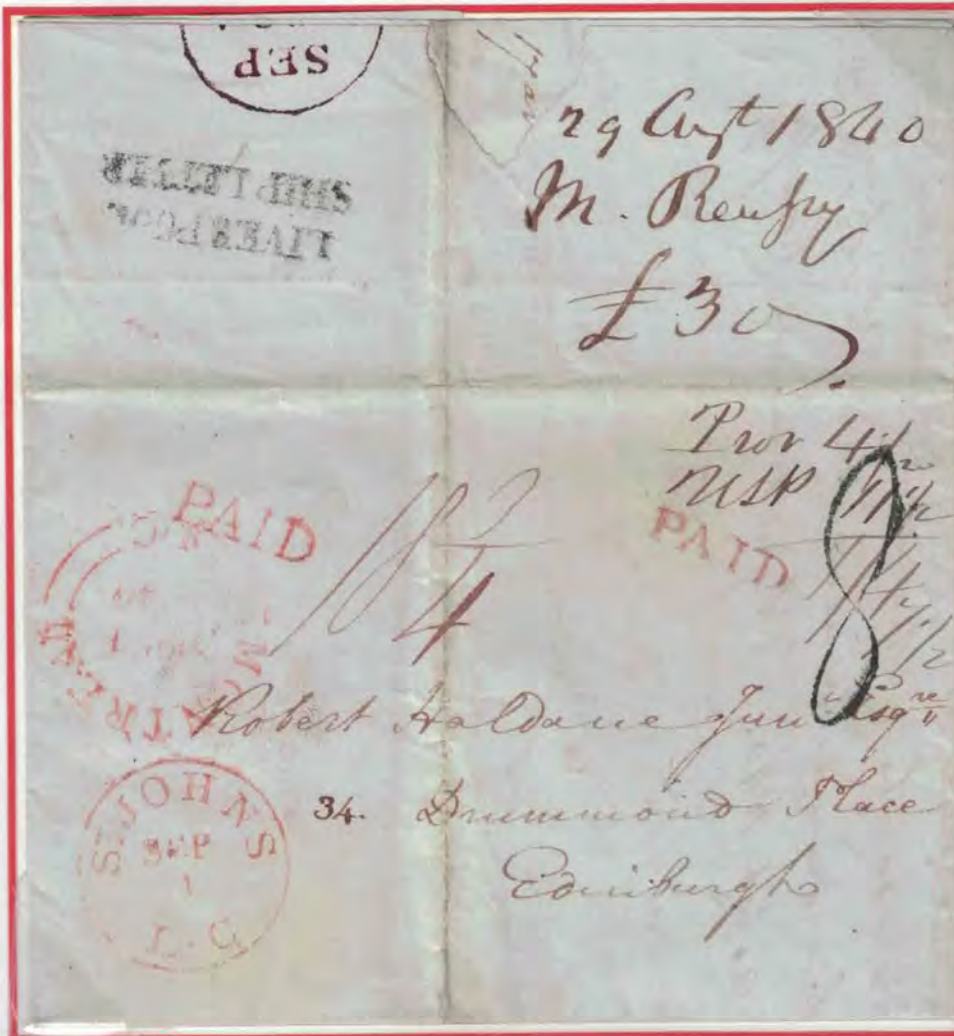 SEP
LIVERPOOL
SHIP LETTER
29 Augt 1840
£30
PAID
PAID
Prov 4 1/2
8
18 3/4
MONTREAL
Robert Haldane Junr Esqre
34. Drummond Place
Edinburgh
ST JOHNS
SEP
1
L.C